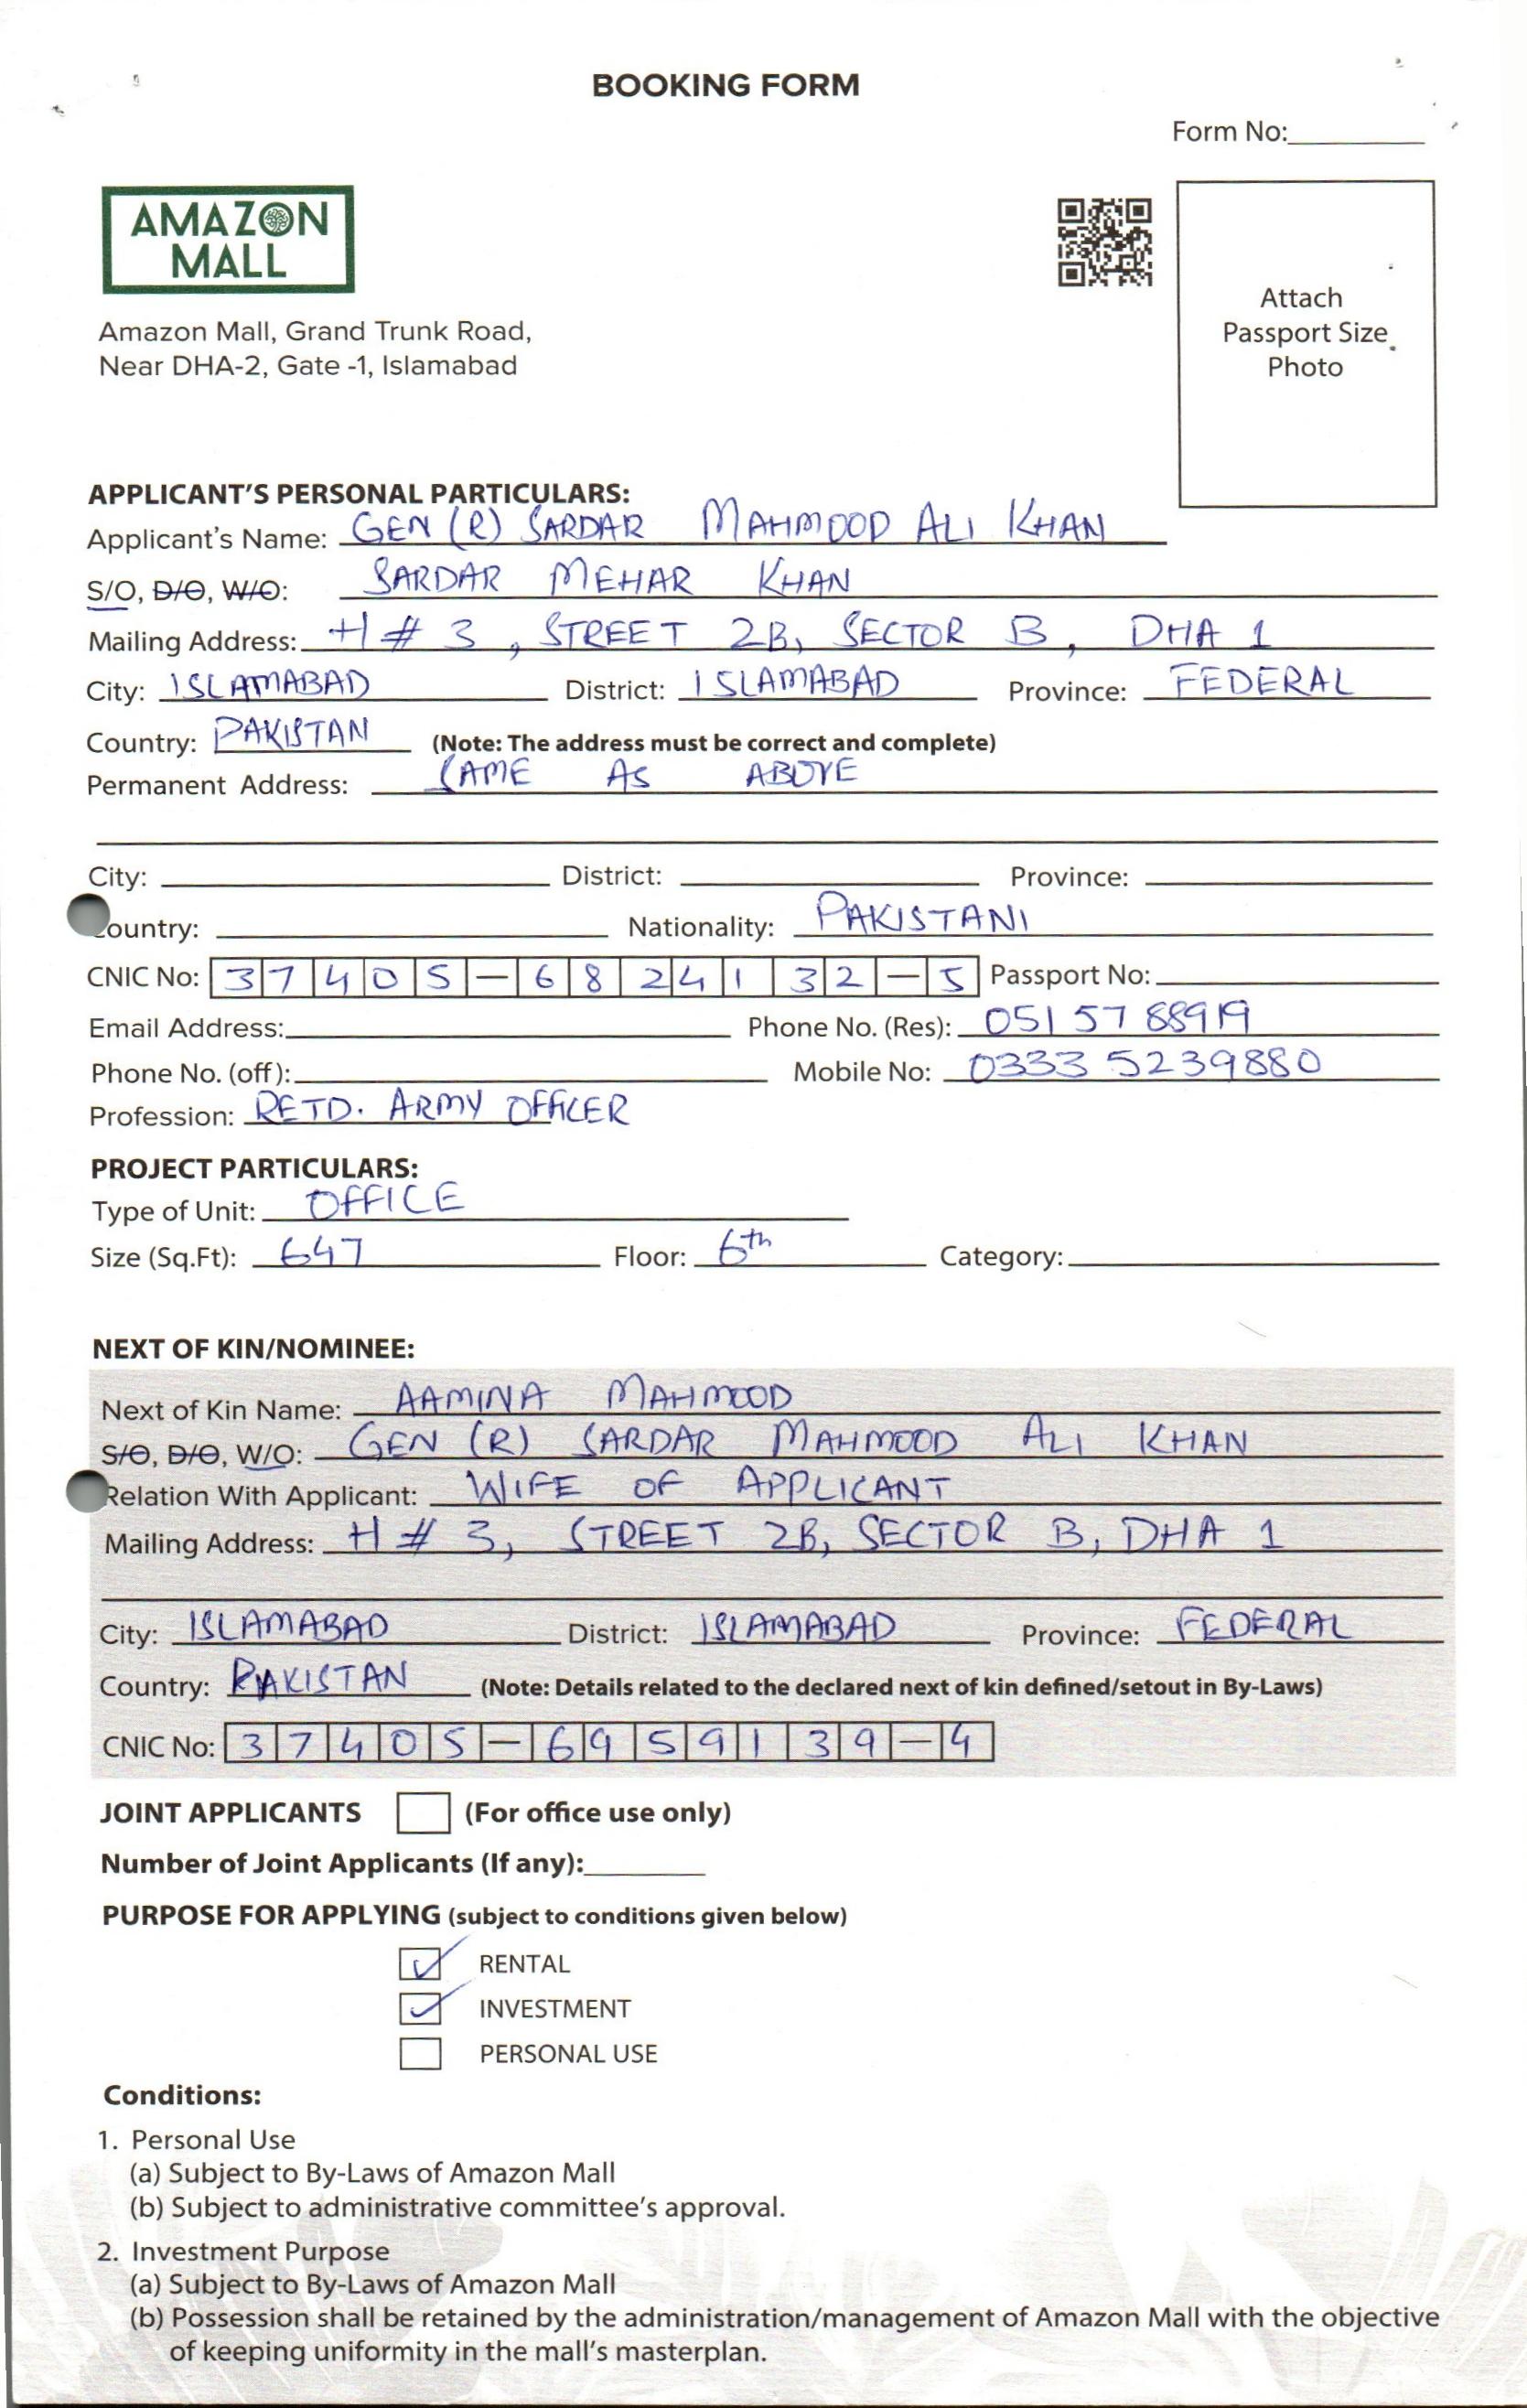 BOOKING FORM
Form No:
AMAZON
MALL
Amazon Mall, Grand Trunk Road,
Near DHA-2, Gate -1, Islamabad
Attach
Passport Size
Photo
APPLICANT'S PERSONAL PARTICULARS:
Applicant's Name: GEN (R) SARDAR MAHMOOD ALI KHAN
S/O, D/O, W/O: SARDAR MEHAR KHAN
Mailing Address: H # 3, STREET 2B, SECTOR B, DHA 1
City: ISLAMABAD District: ISLAMABAD Province: FEDERAL
Country: PAKISTAN (Note: The address must be correct and complete)
Permanent Address: SAME AS ABOVE
City: District: Province:
Country: Nationality: PAKISTANI
CNIC No: 37405-6824132-5 Passport No:
Email Address: Phone No. (Res): 051 57 88919
Phone No. (off): Mobile No: 0333 5239880
Profession: RETD. ARMY OFFICER
PROJECT PARTICULARS:
Type of Unit: OFFICE
Size (Sq.Ft): 647 Floor: 6th Category:
NEXT OF KIN/NOMINEE:
Next of Kin Name: AAMINA MAHMOOD
S/O, D/O, W/O: GEN (R) SARDAR MAHMOOD ALI KHAN
Relation With Applicant: WIFE OF APPLICANT
Mailing Address: H # 3, STREET 2B, SECTOR B, DHA 1
City: ISLAMABAD District: ISLAMABAD Province: FEDERAL
Country: PAKISTAN (Note: Details related to the declared next of kin defined/setout in By-Laws)
CNIC No: 37405-6959139-4
JOINT APPLICANTS (For office use only)
Number of Joint Applicants (If any):
PURPOSE FOR APPLYING (subject to conditions given below)
RENTAL
INVESTMENT
PERSONAL USE
Conditions:
1. Personal Use
(a) Subject to By-Laws of Amazon Mall
(b) Subject to administrative committee's approval.
2. Investment Purpose
(a) Subject to By-Laws of Amazon Mall
(b) Possession shall be retained by the administration/management of Amazon Mall with the objective
of keeping uniformity in the mall's masterplan.